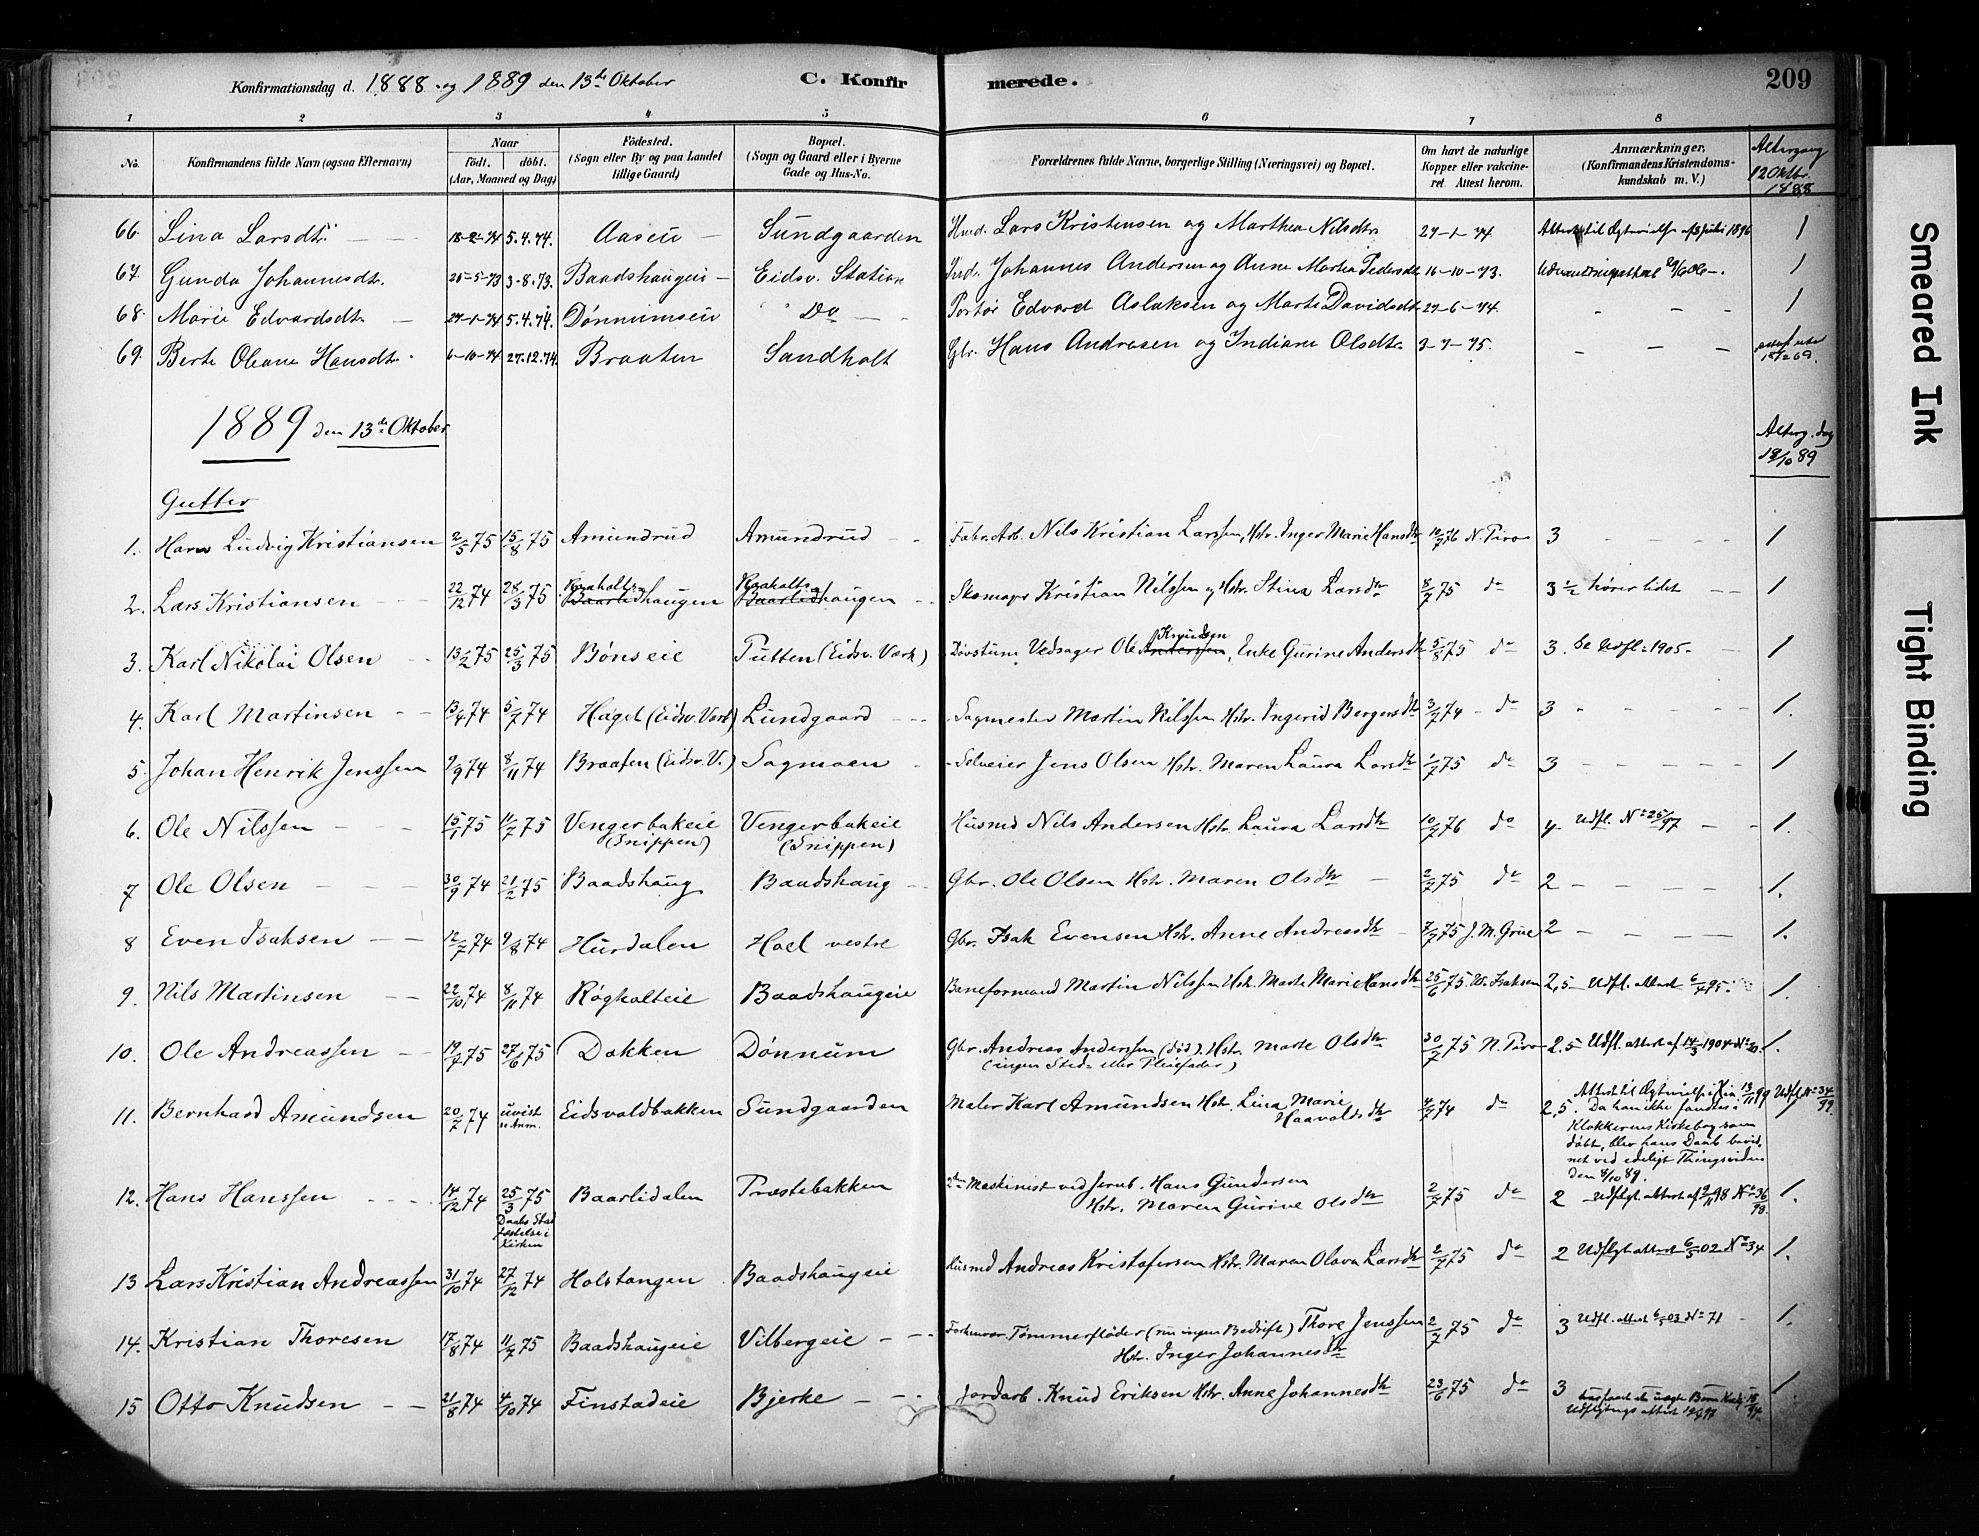 Konfirmationsdag d. 1888 og 1889 den 13de Oktober C. Konfirmerede. 209
1 2 3 4 5 6 7 8
No. Konfirmandens fulde Navn (ogsaa Efternavn) Naar födt. döbt. (Aar, Maaned og Dag) Födested. (Sogn eller By og paa Landet tillige Gaard) Bopæl. (Sogn og Gaard eller i Byerne Gade og Hus-No. Forældrenes fulde Navne, borgerlige Stilling (Næringsvei) og Bopæl. Om havt de naturlige Kopper eller vakcineret Attest herom. Anmærkninger. (Konfirmandens Kristendomskundskab m. V.) Altergang 12 Oktbr. 1888
66. Lina Larsdtr. 18-2-74 5.4.74. Aaseie Sundgaarden Lars Kristensen og Marthea Nilsdtr. 27-1-74 1
67. Gunda Johannesdtr. 26-5-73 3.8.73. Baadshaugeie Eidsv. Station Johannes Andersen og Anne Marthea Pedersdtr 16-10-73. 1
68. Marie Edvardsdtr. 27-1-74 5.4.74. Dønnumseie Do Portør Edvard Aslaksen og Marte Davidsdtr 27-6-74. 1
69. Berte Oleane Hansdtr. 6-10-74 27.12.74 Braaten Sandholt Gbr. Hans Andresen og Indiane Olsdtr. 3-7-75.
1889 den 13de Oktober Alterg. dag 18/10 89
Gutter
1. Hans Ludvig Kristiansen 2/5 75 15/8 75 Amundrud Amundrud Fabr. Arb. Nils Kristian Larssen, Hstr. Inger Marie Hansdtr 10/7 76 N. Piro 3 1
2. Lars Kristiansen 22/12 74 28/3 75 Raaholts Baarlidhaugen Raaholts Baarlidhaugen Skomager Kristian Nilssen og Hstr. Stina Larsdtr 8/7 75 do 3 1/2 hører lidet 1
3. Karl Nikolai Olsen 13/2 75 25/3 75 Bönseie Putten (Eidsv. Værk) Døvstum Vedsager Ole Anderssen Knudsen, Enke Gurine Andersdtr 5/8 75 do 3. Se Udfl. 1905. 1
4. Karl Martinsen 13/4 74 5/7 74 Haget (Eidsv. Værk) Lundgaard Sagmester Martin Nilssen Hstr. Ingerid Bergersdtr 3/7 74 do 3 1.
5. Johan Henrik Jenssen 9/9 74 8/11 74 Braaten (Eidsv. V.) Sagmoen Selveier Jens Olsen Hstr. Maren Laura Larsdtr 1/7 75 do 3 1
6. Ole Nilssen 15/1 75 11/7 75 Vengerbakeie (Snippen) Vengerbakeie (Snippen) Husmd Nils Andersen Hstr. Laura Larsdtr 10/7 76 do 4 Udfl. No 25/97 1.
7 Ole Olsen 30/9 74 21/2 75 Baadshaug Baadshaug Gbr. Ole Olsen Hstr. Maren Olsdtr 2/7 75 do 2 1.
8 Even Isaksen 12/7 74 9/8 74 Hurdalen Hoel vestre Gbr. Isak Evensen Hstr. Anne Andreasdtr 7/7 75 J. M. Grue 2 1.
9. Nils Martinsen 22/10 74 8/11 74 Røgholteie Baadshaugeie Baneformand Martin Nilssen Hstr. Marte Marie Hansdtr 25/6 75 Isaksen 2,5 Udfl. attest 6/4 95. 1.
10. Ole Andreassen 19/7 75 27/6 75 Dokken Dönnum Gbr. Andreas Anderssen (död). Hstr. Marte Olsdtr
(ingen Sted- eller Pleiefader) 30/7 75 N. Piro 2.5 Udfl. attest af 14/3 1904 No 20. 1.
11. Bernhard Amundsen 20/7 74 uvist se Anm. Eidsvoldbakken Sundgaarden Maler Karl Amundsen Hstr. Lina Marie Haavoldsdtr 4/7 74 do 2,5. Attest til 13/11 99 Udfl. No 34/99.
Da han ikke fandtes i
Klokkerens Kirkebog som
døbt, blev hans Daab bevidnet ved edeligt Thingsvidne
den 8/10 89.
12. Hans Hanssen 14/12 74 25/3 75 Daabs Stadfæstelse i Kirken Baarlidalen Præstebakken 2den Maskinist ved Jernb. Hans Gundersen
Hstr. Maren Gurine Olsdtr 2/7 75 do 2 Udflyt. attest af 9/11 98 No 36/98. 1.
13 Lars Kristian Andreassen 31/10 74 27/12 74 Holstangen Baadshaugeie Husmd Andreas Kristofersen Hstr. Maren Olava Larsdtr 2/7 75 do 2 Udflytattest 6/5 02 No 34 1.
14. Kristian Thoresen 17/8 74 11/7 75 Baadshaugeie Vilbergeie Forhenvær. Tømmerfløder (nu ingen Bedrift) Thore Jenssen
Hstr. Inger Johannesdtr 2/7 75 do 3 Udfl. attest 6/5 03 No 71 1.
15 Otto Knudsen 21/8 74 4/10 74 Finstadeie Bjerke Jordarb. Knud Eriksen Hstr. Anne Johannesdtr 23/6 75 do 3 1.
Smeared Ink
Tight Binding